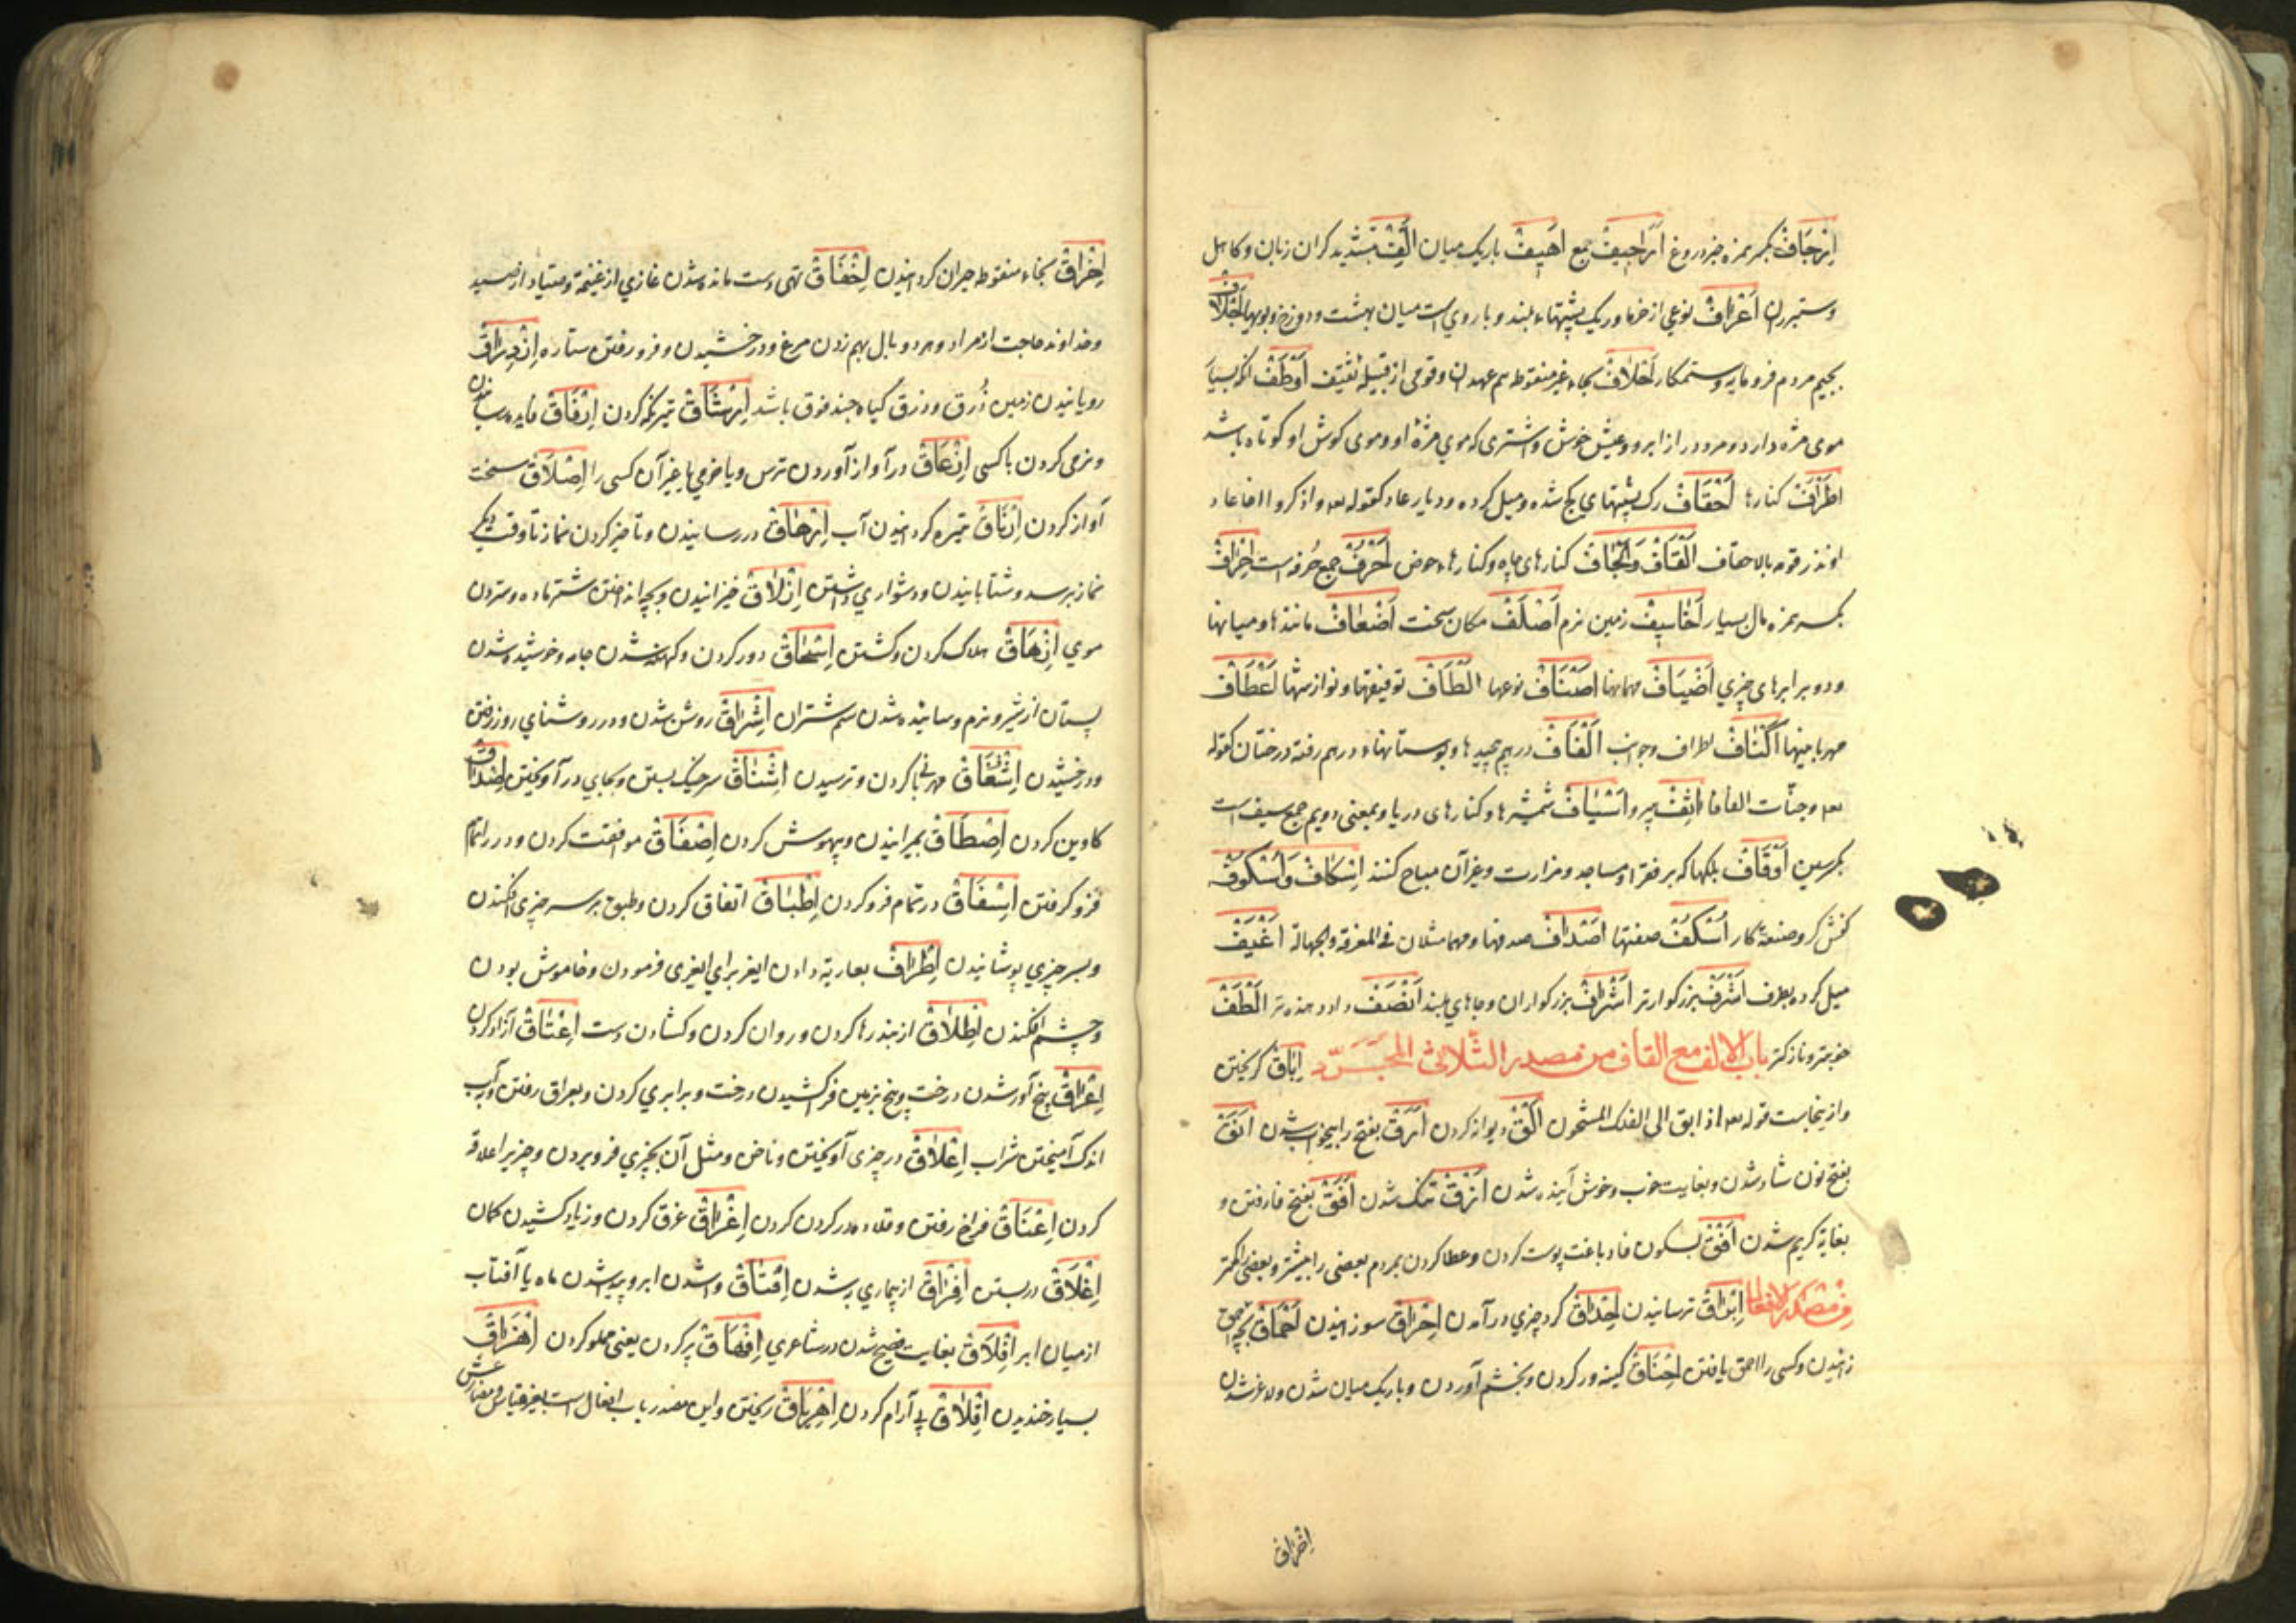 اِرْجَافْ بکسر همزه خبر دروغ اَرَاجِیفْ جمع اَهْیَفْ باریک میان اَلَّفْ بتشدید کران زبان و کاهل
و ستبر ران اَعْرَافْ نوعی از خرما و ریک پشتهاء بلند و باروی است میان بهشت و دوزخ و اَجْلَافْ
بجیم مردم فرومایه و ستمکار اَحْلَافْ بحاء غیر منقوطه هم عهدان و قومی از قبیله ثقیف اَوْطَفْ آنکه بسیار
موی مژه دارد و مرد دراز ابرو و عیش خوش و اشتری که موی مژهٔ او و موی کوش او کوتاه باشد
اَطْرَافْ کنارها اَحْقَافْ ریک پشتهای کج شده و میل کرده و دیار عاد کقوله واذکر اخا عاد
اذ انذر قومه بالاحقاف اَلْقَافْ وَاَلْجَافْ کنارهای چاه و کنارهاء حوض اَحْرُفْ جمع حرفه است اِخْرَافْ
بکسر همزه مال بسیار اَخَاسِیفْ زمین نرم اَصْلَفْ مکان سخت اَضْعَافْ مانندها و میانها
و دو برابرهای چیزی اَضْیَافْ مهمانها اَصْنَافْ نوعها اَلْطَافْ توفیقها و نوازشها اَعْطَافْ
مهربانیها اَکْنَافْ اطراف و جوانب اَلْفَافْ درهم پیچیدها و بوستانهاء درهم رفته درختان کقوله
وجنّات الفافا اَسْیَافْ شمشیرها و کنارهای دریا و بمعنی دویم جمع سیف است
بکسر سین اَوْقَافْ ملکها که بر فقرا و مساجد و مزارات و غیر آن مباح کنند اِسْکَافْ وَاُسْکُوفْ
کفش کر و صنعة کار اُسْکُفْ صفتها اَصْدَافْ صدفها و هما مثلان فی المعرفة و الجهالة اَغْیَفْ
میل کرده بطرف اَشْرَفْ بزرکوارتر اَشْرَافْ بزرکواران و جاهای بلند اَنْصَفْ داد دهنده تر اَلْطَفْ
خوبتر و نازکتر باب الالف مع القاف من مصدر الثلاثی المجرّد اِبَاقْ کریختن
و از ینجاست قوله اذ ابق الی الفلک المشحون اَلْقْ دیوانه کردن اَرَقْ بفتح را بیخواب شدن اَنَقْ
بفتح نون شاد شدن و بغایت خوب و خوش آینده شدن اَزْقْ تنک شدن اَفَقْ بفتح فا رفتن و
بغایة کریم شدن اَفْقْ بسکون فا دباغت پوست کردن و عطا کردن بمردم بعضی را بیشتر و بعضی را کمتر
من مصدر الافعال اِبْرَاقْ ترسانیدن اِحْدَاقْ کرد چیزی درآمدن اِحْرَاقْ سوزانیدن اِحْمَاقْ بچه احمق
زائیدن و کسی را احمق یافتن اِحْنَاقْ کینه ور کردن و بخشم آوردن و باریک میان شدن و لاغر شدن
اِخْرَاقْ
اِخْرَاقْ بخاء منقوطه حیران کردانیدن اِخْفَاقْ تهی دست مانده شدن غازی از غنیمة و صیاد از صید
و خداوند حاجت از مراد و هر دو بال بهم زدن مرغ و درخشیدن و فرو رفتن ستاره اِذْرَاقْ
رویانیدن زمین ذُرَق و ذرق کیاه جندقوق باشد اِرْشَاقْ تیز نکه کردن اِرْفَاقْ فایده رسانیدن
و نرمی کردن با کسی اِزْعَاقْ در آواز آوردن ترس و یا خوفی یا غیر آن کسی را اِصْلَاقْ سخت
آواز کردن اِرْنَاقْ تیره کردانیدن آب اِرْهَاقْ در رسانیدن و تأخیر کردن نماز تا وقت دیکر
نماز برسد و شتابانیدن و دشواری داشتن اِزْلَاقْ خیزانیدن و بچه انداختن شتر ماده و ستردن
موی اِزْهَاقْ هلاک کردن و کشتن اِسْحَاقْ دور کردن و کهنه شدن جامه و خوشیده شدن
پستان از شیر و نرم و سائیده شدن سم شتران اِشْرَاقْ روشن شدن و در روشنای روز رفتن
و درخشیدن اِشْفَاقْ مهربانی کردن و ترسیدن اِشْنَاقْ سر خیک بستن و بجای در آویختن اِصْدَاقْ
کاوین کردن اِصْعَاقْ میرانیدن و بیهوش کردن اِصْفَاقْ موافقت کردن و در را تمام
فرو کرفتن اِسْفَاقْ در تمام فرو کردن اِطْبَاقْ اتفاق کردن و طبق بر سر چیزی افکندن
و بسر چیزی پوشانیدن اِطْرَاقْ بعاریة دادن ایغر برای ایغری فرمودن و خاموش بودن
و چشم افکندن اِطْلَاقْ از بند رها کردن و روان کردن و کشادن دست اِعْتَاقْ آزاد کردن
اِعْرَاقْ بیخ آور شدن درخت و بیخ بزمین فرو کشیدن درخت و برابری کردن و بعراق رفتن و آب
اندک آمیختن شراب اِعْلَاقْ در چیزی آویختن و ناخن و مثل آن بچیزی فرو بردن و چیزیرا علاقه
کردن اِعْنَاقْ فراخ رفتن و قلاده در کردن کردن اِغْرَاقْ غرق کردن و زیاد کشیدن کمان
اِغْلَاقْ در بستن اِفْرَاقْ از بیماری به شدن اِفْتَاقْ وا شدن ابر و پدید شدن ماه یا آفتاب
از میان ابر اِفْلَاقْ بغایت فصیح شدن در شاعری اِفْهَاقْ پر کردن یعنی مملو کردن اِهْزَاقْ
بسیار خندیدن اِقْلَاقْ بی آرام کردن اِهْرِیَاقْ ریختن و این مصدر باب افعال است بغیر قیاس و مضارعش